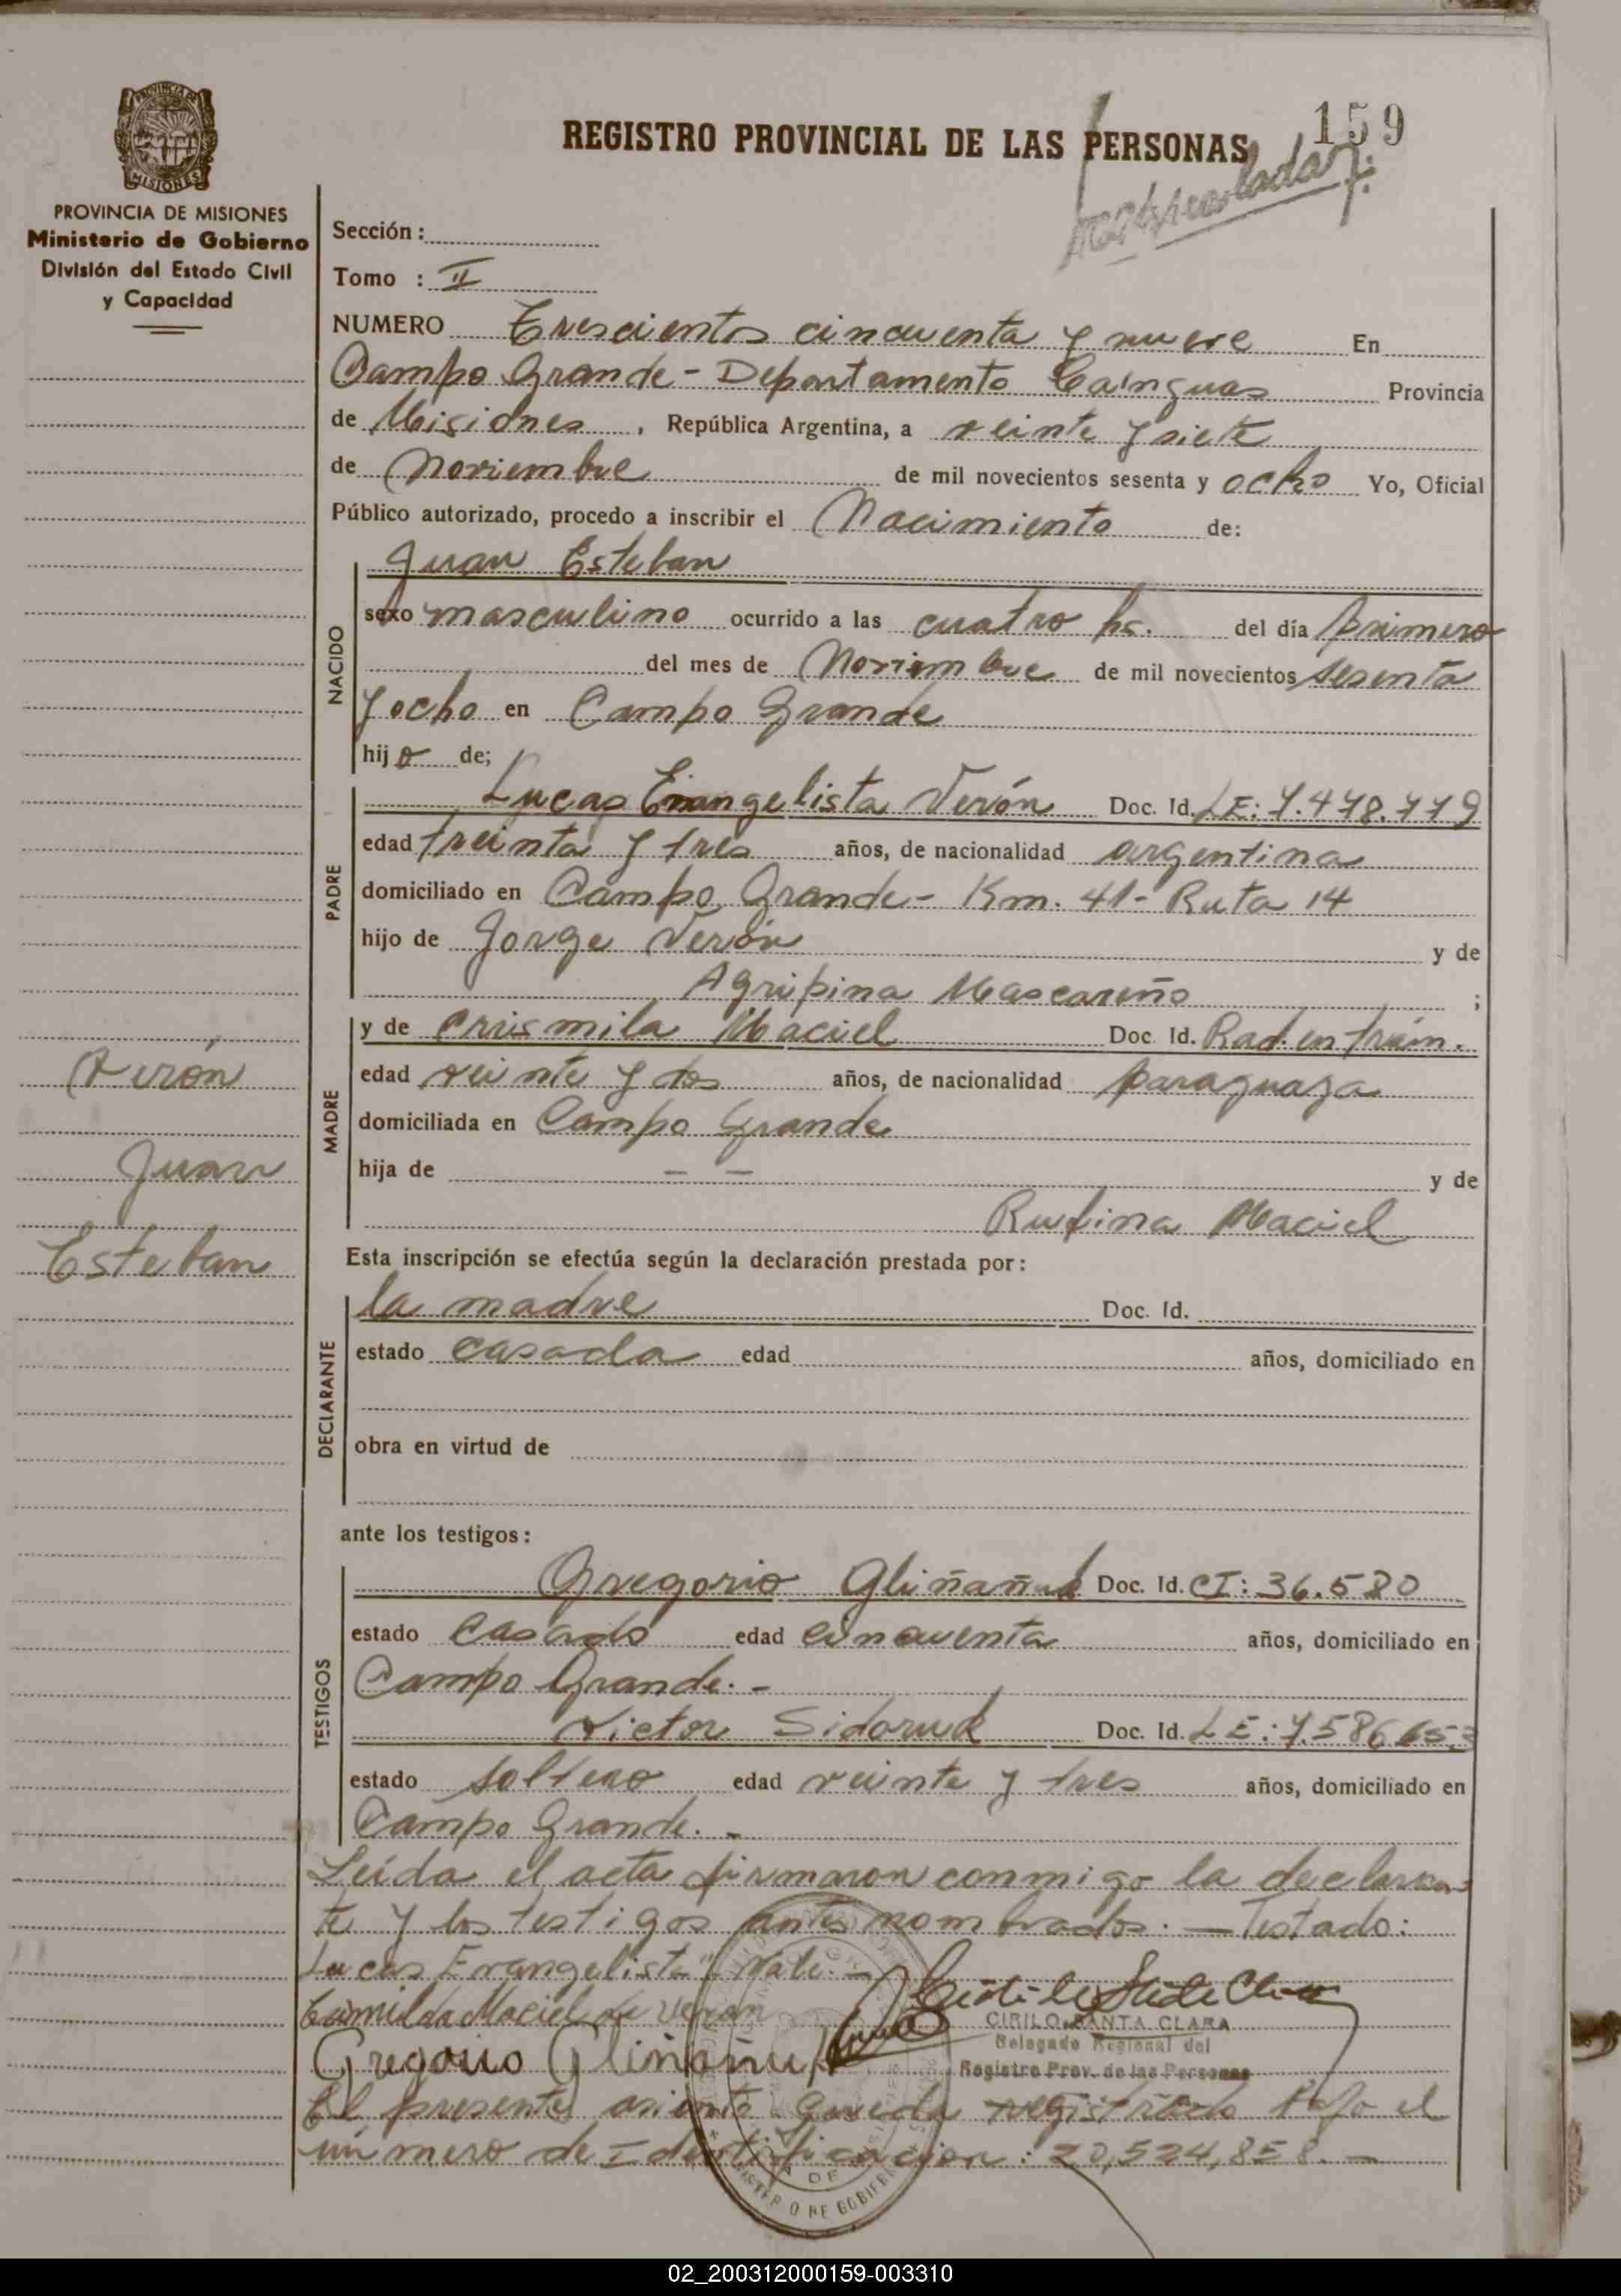 159
REGISTRO PROVINCIAL DE LAS PERSONAS
PROVINCIA DE MISIONES
Ministerio de Gobierno
División del Estado Civil
y Capacidad
Sección :
Tomo : II
NUMERO Trescientos cincuenta y nueve En
Campo Grande - Departamento Cainguas Provincia
de Misiones , República Argentina, a veinte y siete
de Noviembre de mil novecientos sesenta y ocho Yo, Oficial
Público autorizado, procedo a inscribir el Nacimiento de:
Juan Esteban
NACIDO
sexo masculino ocurrido a las cuatro hs. del día primero
del mes de Noviembre de mil novecientos sesenta
y ocho en Campo Grande
hijo de;
PADRE
Lucas Evangelista Verón Doc. Id. LE: 7.478.779
edad treinta y tres años, de nacionalidad argentina
domiciliado en Campo Grande - Km. 41 - Ruta 14
hijo de Jorge Verón y de
Agripina Mascareño ;
MADRE
y de Crismila Maciel Doc Id. Rad. en trám.
edad veinte y dos años, de nacionalidad paraguaya
domiciliada en Campo Grande
hija de — — y de
Rufina Maciel
Verón
Juan
Esteban
Esta inscripción se efectúa según la declaración prestada por:
DECLARANTE
la madre Doc. Id.
estado casada edad años, domiciliado en
obra en virtud de
ante los testigos:
TESTIGOS
Gregorio Gliñañuk Doc. Id. CI: 36.580
estado Casado edad cincuenta años, domiciliado en
Campo Grande. -
Victor Sidoruk Doc. Id. LE: 7.586.653
estado soltero edad veinte y tres años, domiciliado en
Campo Grande. -
Leída el acta firmaron conmigo la declaran
te y los testigos antes nombrados. — Testado:
Lucas Evangelista" Vale. -
Maciel de Veron
CIRILO SANTA CLARA
Delegado Regional del
Registro Prov. de las Personas
Gregorio Gliñañuk
El presente asiento queda registrado bajo el
número de Identificacion: 20,524,858. -
02_200312000159-003310